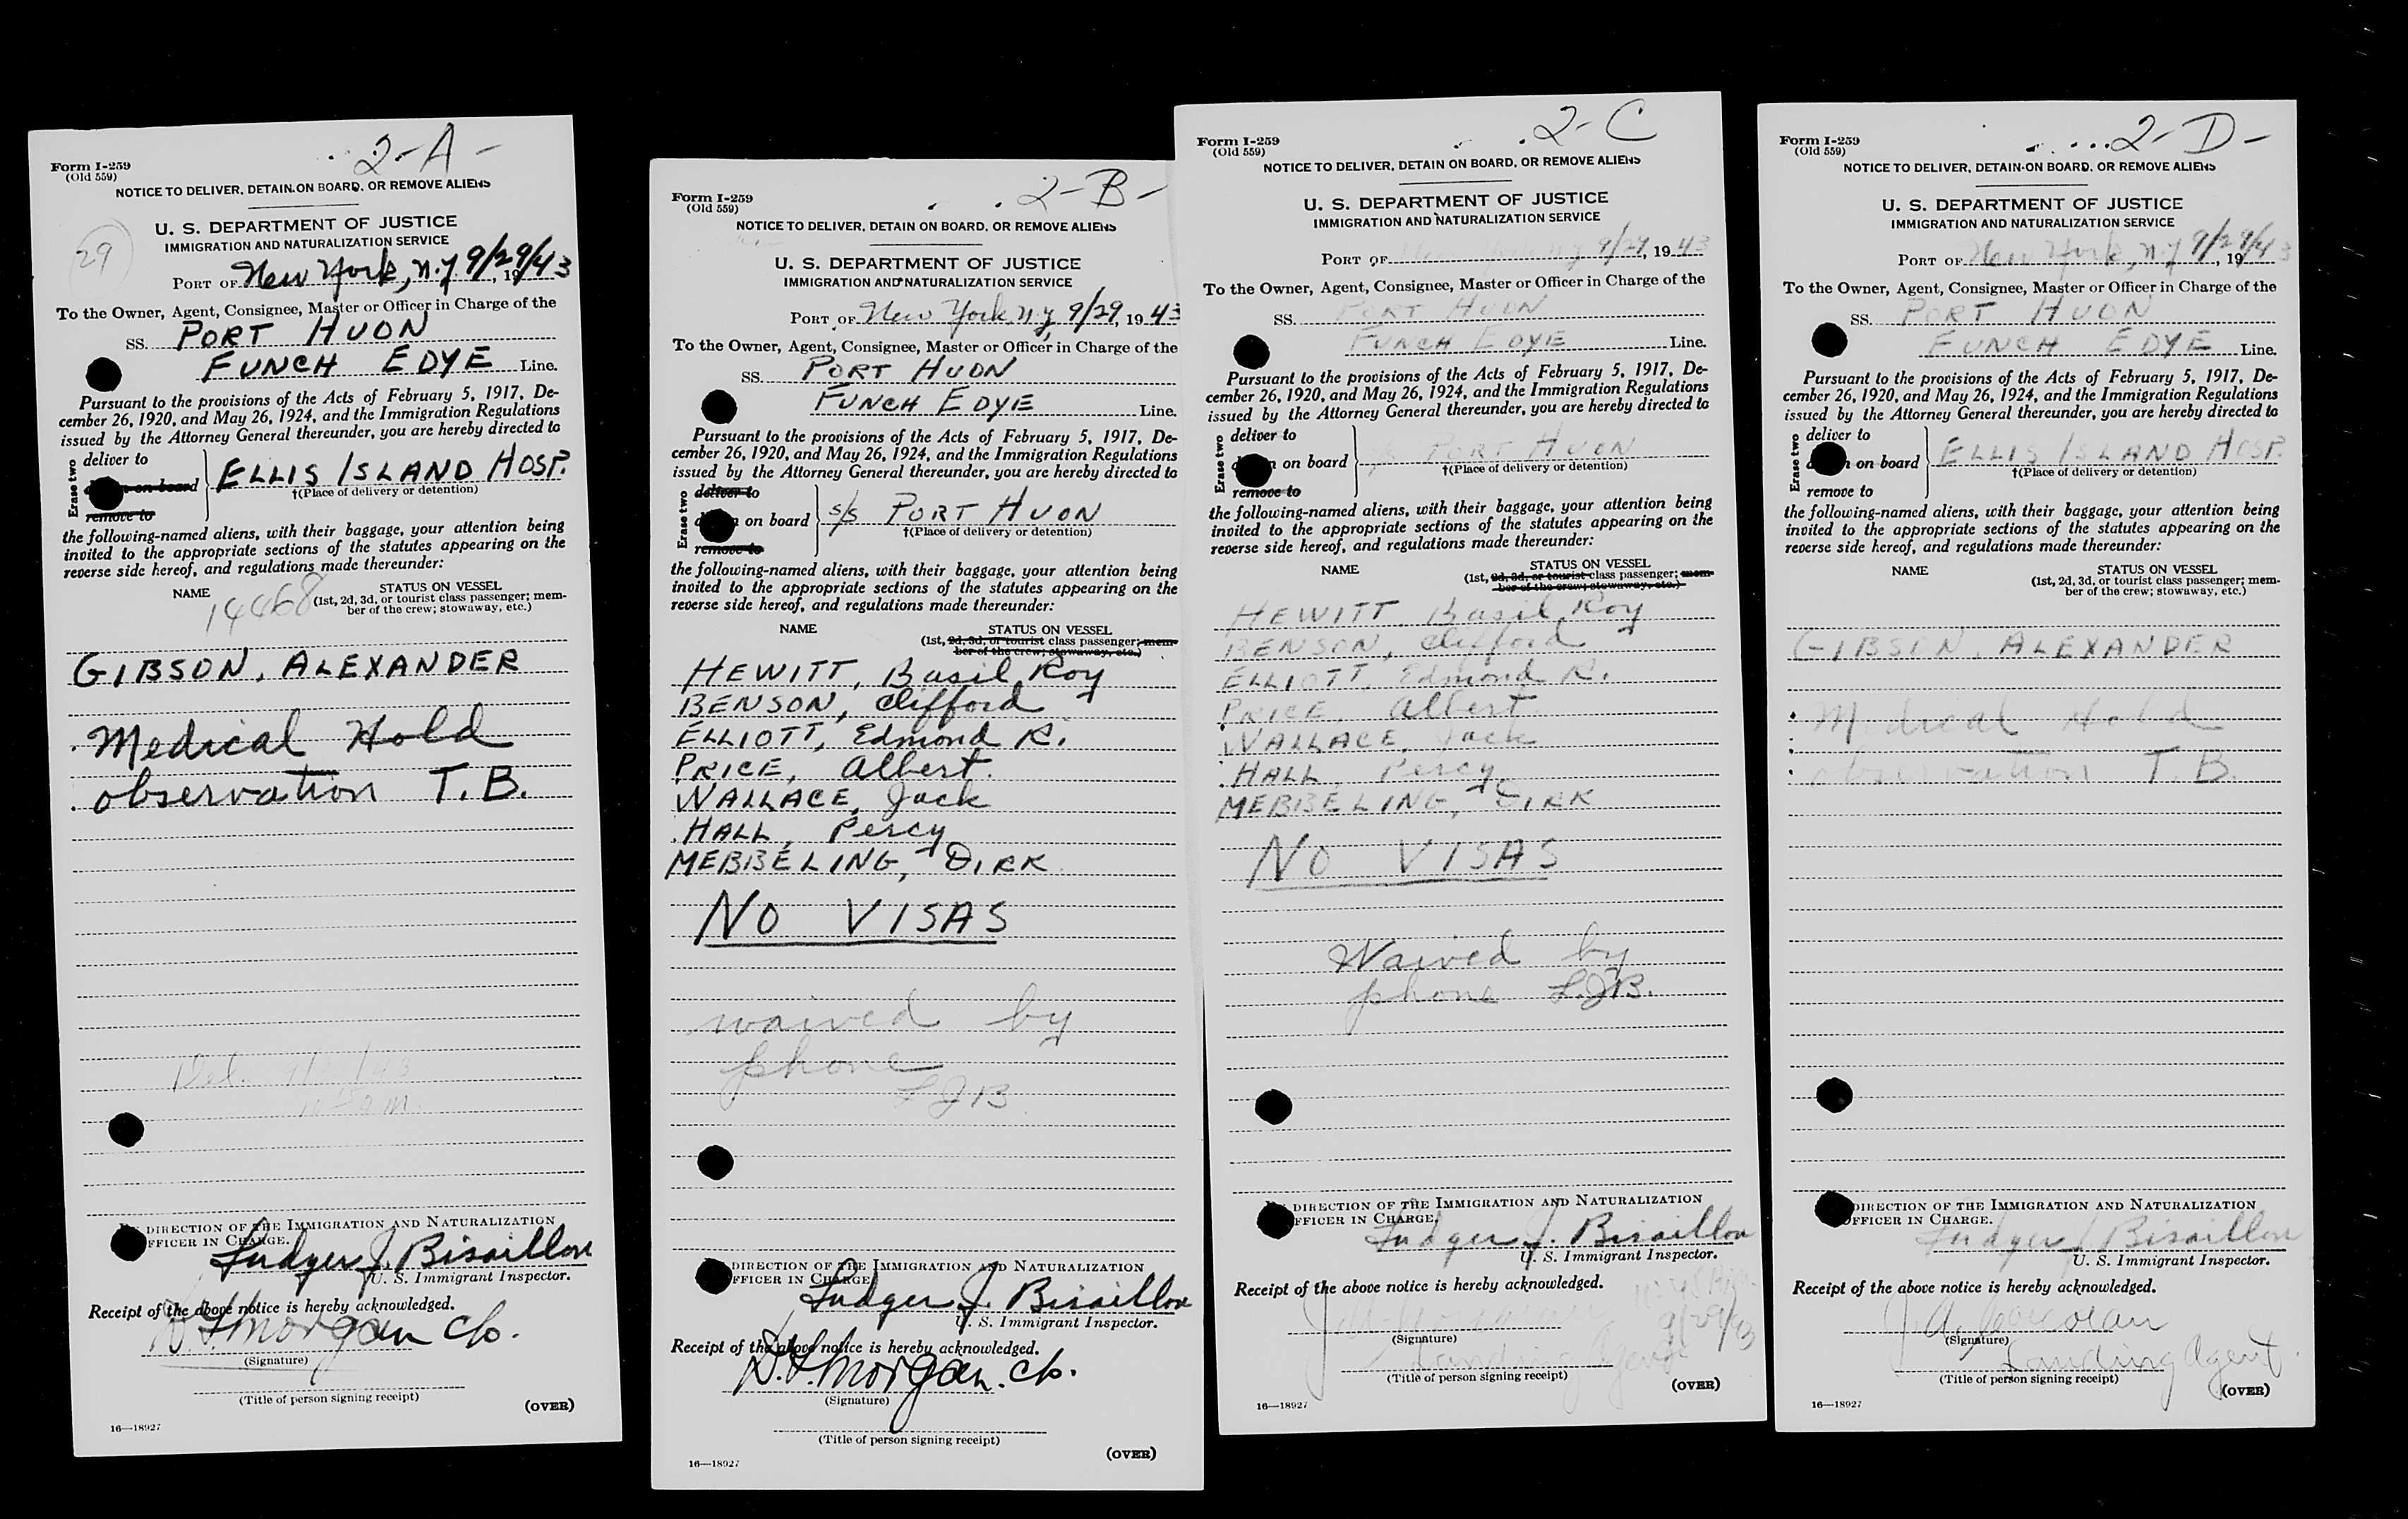 2-A-
Form I-259
(Old 559)
NOTICE TO DELIVER, DETAIN ON BOARD, OR REMOVE ALIENS
29
U. S. DEPARTMENT OF JUSTICE
IMMIGRATION AND NATURALIZATION SERVICE
PORT OF New York, N.Y 9/29, 19/43
To the Owner, Agent, Consignee, Master or Officer in Charge of the
SS. PORT HUON
FUNCH EDYE Line.
Pursuant to the provisions of the Acts of February 5, 1917, De-
cember 26, 1920, and May 26, 1924, and the Immigration Regulations
issued by the Attorney General thereunder, you are hereby directed to
Erase two
deliver to
on board
ELLIS ISLAND HOSP.
†(Place of delivery or detention)
remove to
the following-named aliens, with their baggage, your attention being
invited to the appropriate sections of the statutes appearing on the
reverse side hereof, and regulations made thereunder:
NAME
14468
STATUS ON VESSEL
(1st, 2d, 3d, or tourist class passenger; mem-
ber of the crew; stowaway, etc.)
GIBSON, ALEXANDER
Medical Hold
observation T.B.
Del. 9/30/43
DIRECTION OF THE IMMIGRATION AND NATURALIZATION
FFICER IN CHARGE.
Ludger J. Bisaillon
U. S. Immigrant Inspector.
Receipt of the above notice is hereby acknowledged.
Morgan
(Signature)
(Title of person signing receipt)
(OVER)
16—18927
2-B-
Form I-259
(Old 559)
NOTICE TO DELIVER, DETAIN ON BOARD, OR REMOVE ALIENS
U. S. DEPARTMENT OF JUSTICE
IMMIGRATION AND NATURALIZATION SERVICE
PORT OF New York, N.Y, 9/29, 1943
To the Owner, Agent, Consignee, Master or Officer in Charge of the
SS. PORT HUON
FUNCH EDYE Line.
Pursuant to the provisions of the Acts of February 5, 1917, De-
cember 26, 1920, and May 26, 1924, and the Immigration Regulations
issued by the Attorney General thereunder, you are hereby directed to
Erase two
deliver to
on board
s/s PORT HUON
†(Place of delivery or detention)
remove to
the following-named aliens, with their baggage, your attention being
invited to the appropriate sections of the statutes appearing on the
reverse side hereof, and regulations made thereunder:
NAME
STATUS ON VESSEL
(1st, 2d, 3d, or tourist class passenger; mem-
ber of the crew; stowaway, etc.)
HEWITT, Basil Roy
BENSON, Clifford
ELLIOTT, Edmond R.
PRICE, Albert.
WALLACE, Jack
HALL, Percy
MEBBELING, DIRK
NO VISAS
waived by
phone
LJB
DIRECTION OF THE IMMIGRATION AND NATURALIZATION
FFICER IN CHARGE
Ludger J. Bisaillon
U. S. Immigrant Inspector.
Receipt of the above notice is hereby acknowledged.
Morgan
(Signature)
(Title of person signing receipt)
(OVER)
16—18927
2-C
Form I-259
(Old 559)
NOTICE TO DELIVER, DETAIN ON BOARD, OR REMOVE ALIENS
U. S. DEPARTMENT OF JUSTICE
IMMIGRATION AND NATURALIZATION SERVICE
PORT OF New York N.Y 9/29, 1943
To the Owner, Agent, Consignee, Master or Officer in Charge of the
SS. PORT HUON
FUNCH EDYE Line.
Pursuant to the provisions of the Acts of February 5, 1917, De-
cember 26, 1920, and May 26, 1924, and the Immigration Regulations
issued by the Attorney General thereunder, you are hereby directed to
Erase two
deliver to
on board
s/s PORT HUON
†(Place of delivery or detention)
remove to
the following-named aliens, with their baggage, your attention being
invited to the appropriate sections of the statutes appearing on the
reverse side hereof, and regulations made thereunder:
NAME
STATUS ON VESSEL
(1st, 2d, 3d, or tourist class passenger; mem-
ber of the crew; stowaway, etc.)
HEWITT, Basil Roy
BENSON, Clifford
ELLIOTT, Edmond R.
PRICE, Albert
WALLACE, Jack
HALL, Percy
MEBBELING, DIRK
NO VISAS
Waived by
phone L.J.B.
DIRECTION OF THE IMMIGRATION AND NATURALIZATION
FFICER IN CHARGE.
Ludger J. Bisaillon
U. S. Immigrant Inspector.
Receipt of the above notice is hereby acknowledged.
9/29/43
(Signature)
Landing Agent
(Title of person signing receipt)
(OVER)
16—18927
2-D-
Form I-259
(Old 559)
NOTICE TO DELIVER, DETAIN ON BOARD, OR REMOVE ALIENS
U. S. DEPARTMENT OF JUSTICE
IMMIGRATION AND NATURALIZATION SERVICE
PORT OF New York, N.Y 9/29, 19/43
To the Owner, Agent, Consignee, Master or Officer in Charge of the
SS. PORT HUON
FUNCH EDYE Line.
Pursuant to the provisions of the Acts of February 5, 1917, De-
cember 26, 1920, and May 26, 1924, and the Immigration Regulations
issued by the Attorney General thereunder, you are hereby directed to
Erase two
deliver to
on board
ELLIS ISLAND HOSP.
†(Place of delivery or detention)
remove to
the following-named aliens, with their baggage, your attention being
invited to the appropriate sections of the statutes appearing on the
reverse side hereof, and regulations made thereunder:
NAME
STATUS ON VESSEL
(1st, 2d, 3d, or tourist class passenger; mem-
ber of the crew; stowaway, etc.)
GIBSON, ALEXANDER
Medical Hold
observation T.B.
DIRECTION OF THE IMMIGRATION AND NATURALIZATION
OFFICER IN CHARGE.
Ludger J Bisaillon
U. S. Immigrant Inspector.
Receipt of the above notice is hereby acknowledged.
(Signature)
Landing Agent.
(Title of person signing receipt)
(OVER)
16—18927